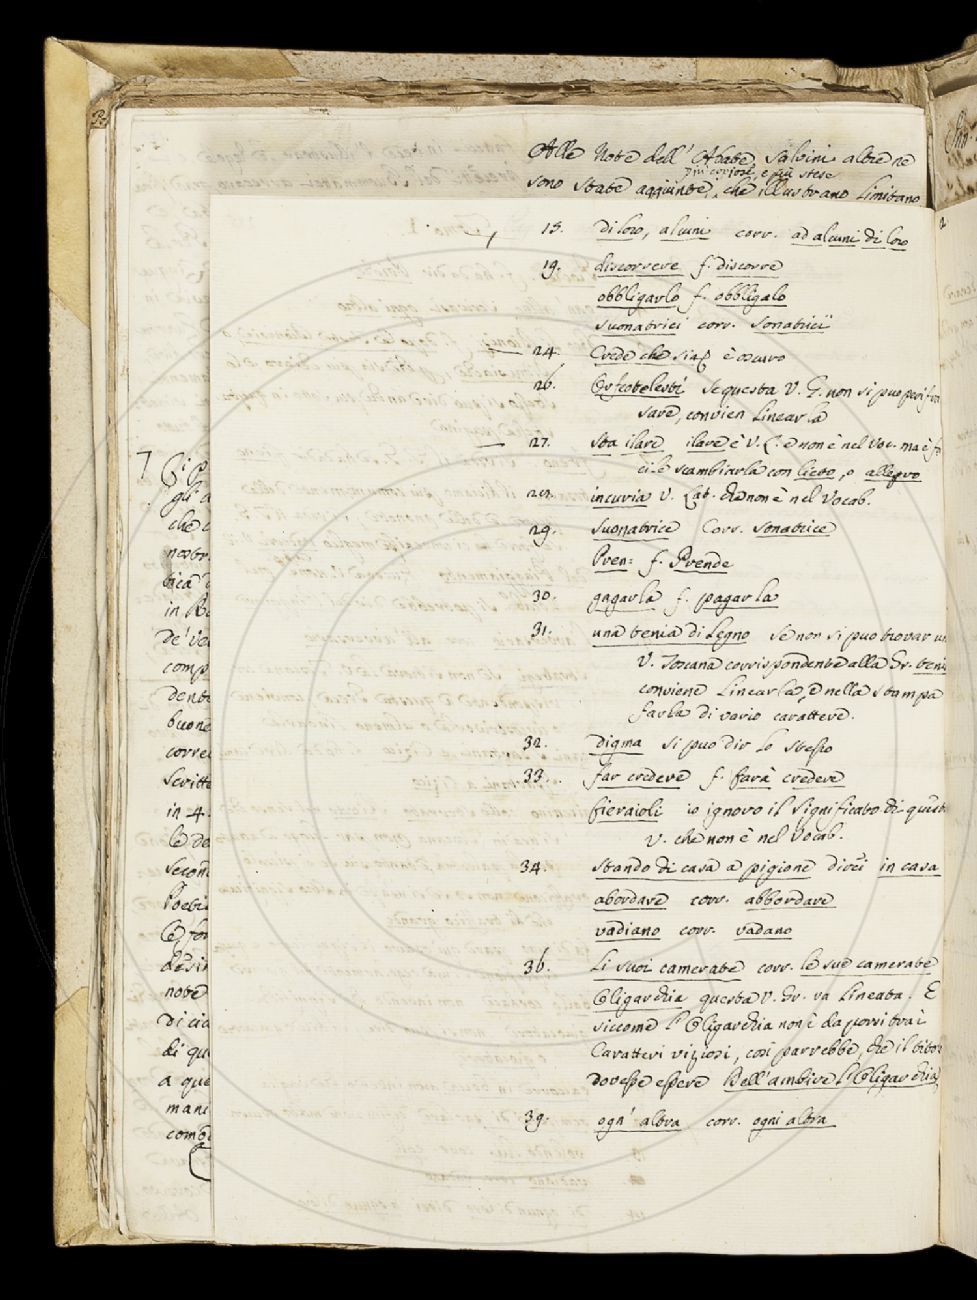 Alle Note dell' Abate Salvini altre ne
più copiose, e più stese
sono state aggiunte, che illustrano
15. di loro, alcuni corr. ad alcuni di loro
19. discorrere f. discorre
obbligarlo f. obbligalo
suonatrici corr. sonatrici
24. Crede che è oscuro
26. se questa V. G. non si può
sare, convien linearla
27. sta ilare ilare è V. L. e non è nel Voc. ma è
cile scambiarla con lieto, o allegro
incuria V. Lat. che non è nel Vocab.
29. suonatrice Corr. sonatrice
Pren= f. Prende
30. gagarla f. pagarla
31. una tenia di Legno se non si può trovar
V. Toscana corrispondente alla Gr.
conviene Linearla, e nella stampa
farla di vario carattere.
32. digma si può dir lo stesso
33. far credere f. farà credere
fieraioli io ignoro il significato di
V. che non è nel Vocab.
34. stando di casa a pigione dicei in casa
abordare corr. abbordare
vadiano corr. vadano
36. Li suoi camerate corr. le sue camerate
Oligarchia questa V. Gr. va Lineata. E
siccome l'Oligarchia non è da porsi trai
Caratteri viziosi, così parrebbe, che il
dovesse essere Dell'ambire l'Oligarchia
39. ogn' altra corr. ogni altra
gli a
che
in
de'
comp
dente
buone
corre
scritte
in 4.
secon
note
di
di qu
a que
mani
come